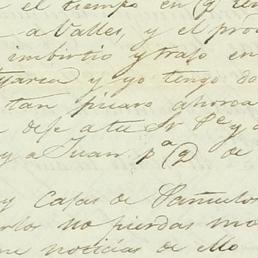 el tiempo en q.
a Valles, y el pro
imbirtio y trajo en
tarea y yo tengo do
tan picaro ahorca
dese a tu Sr Pe y
y a Juan pa 2 de
y Casas de Pañuelos
no pierdas mo
noticias de ello